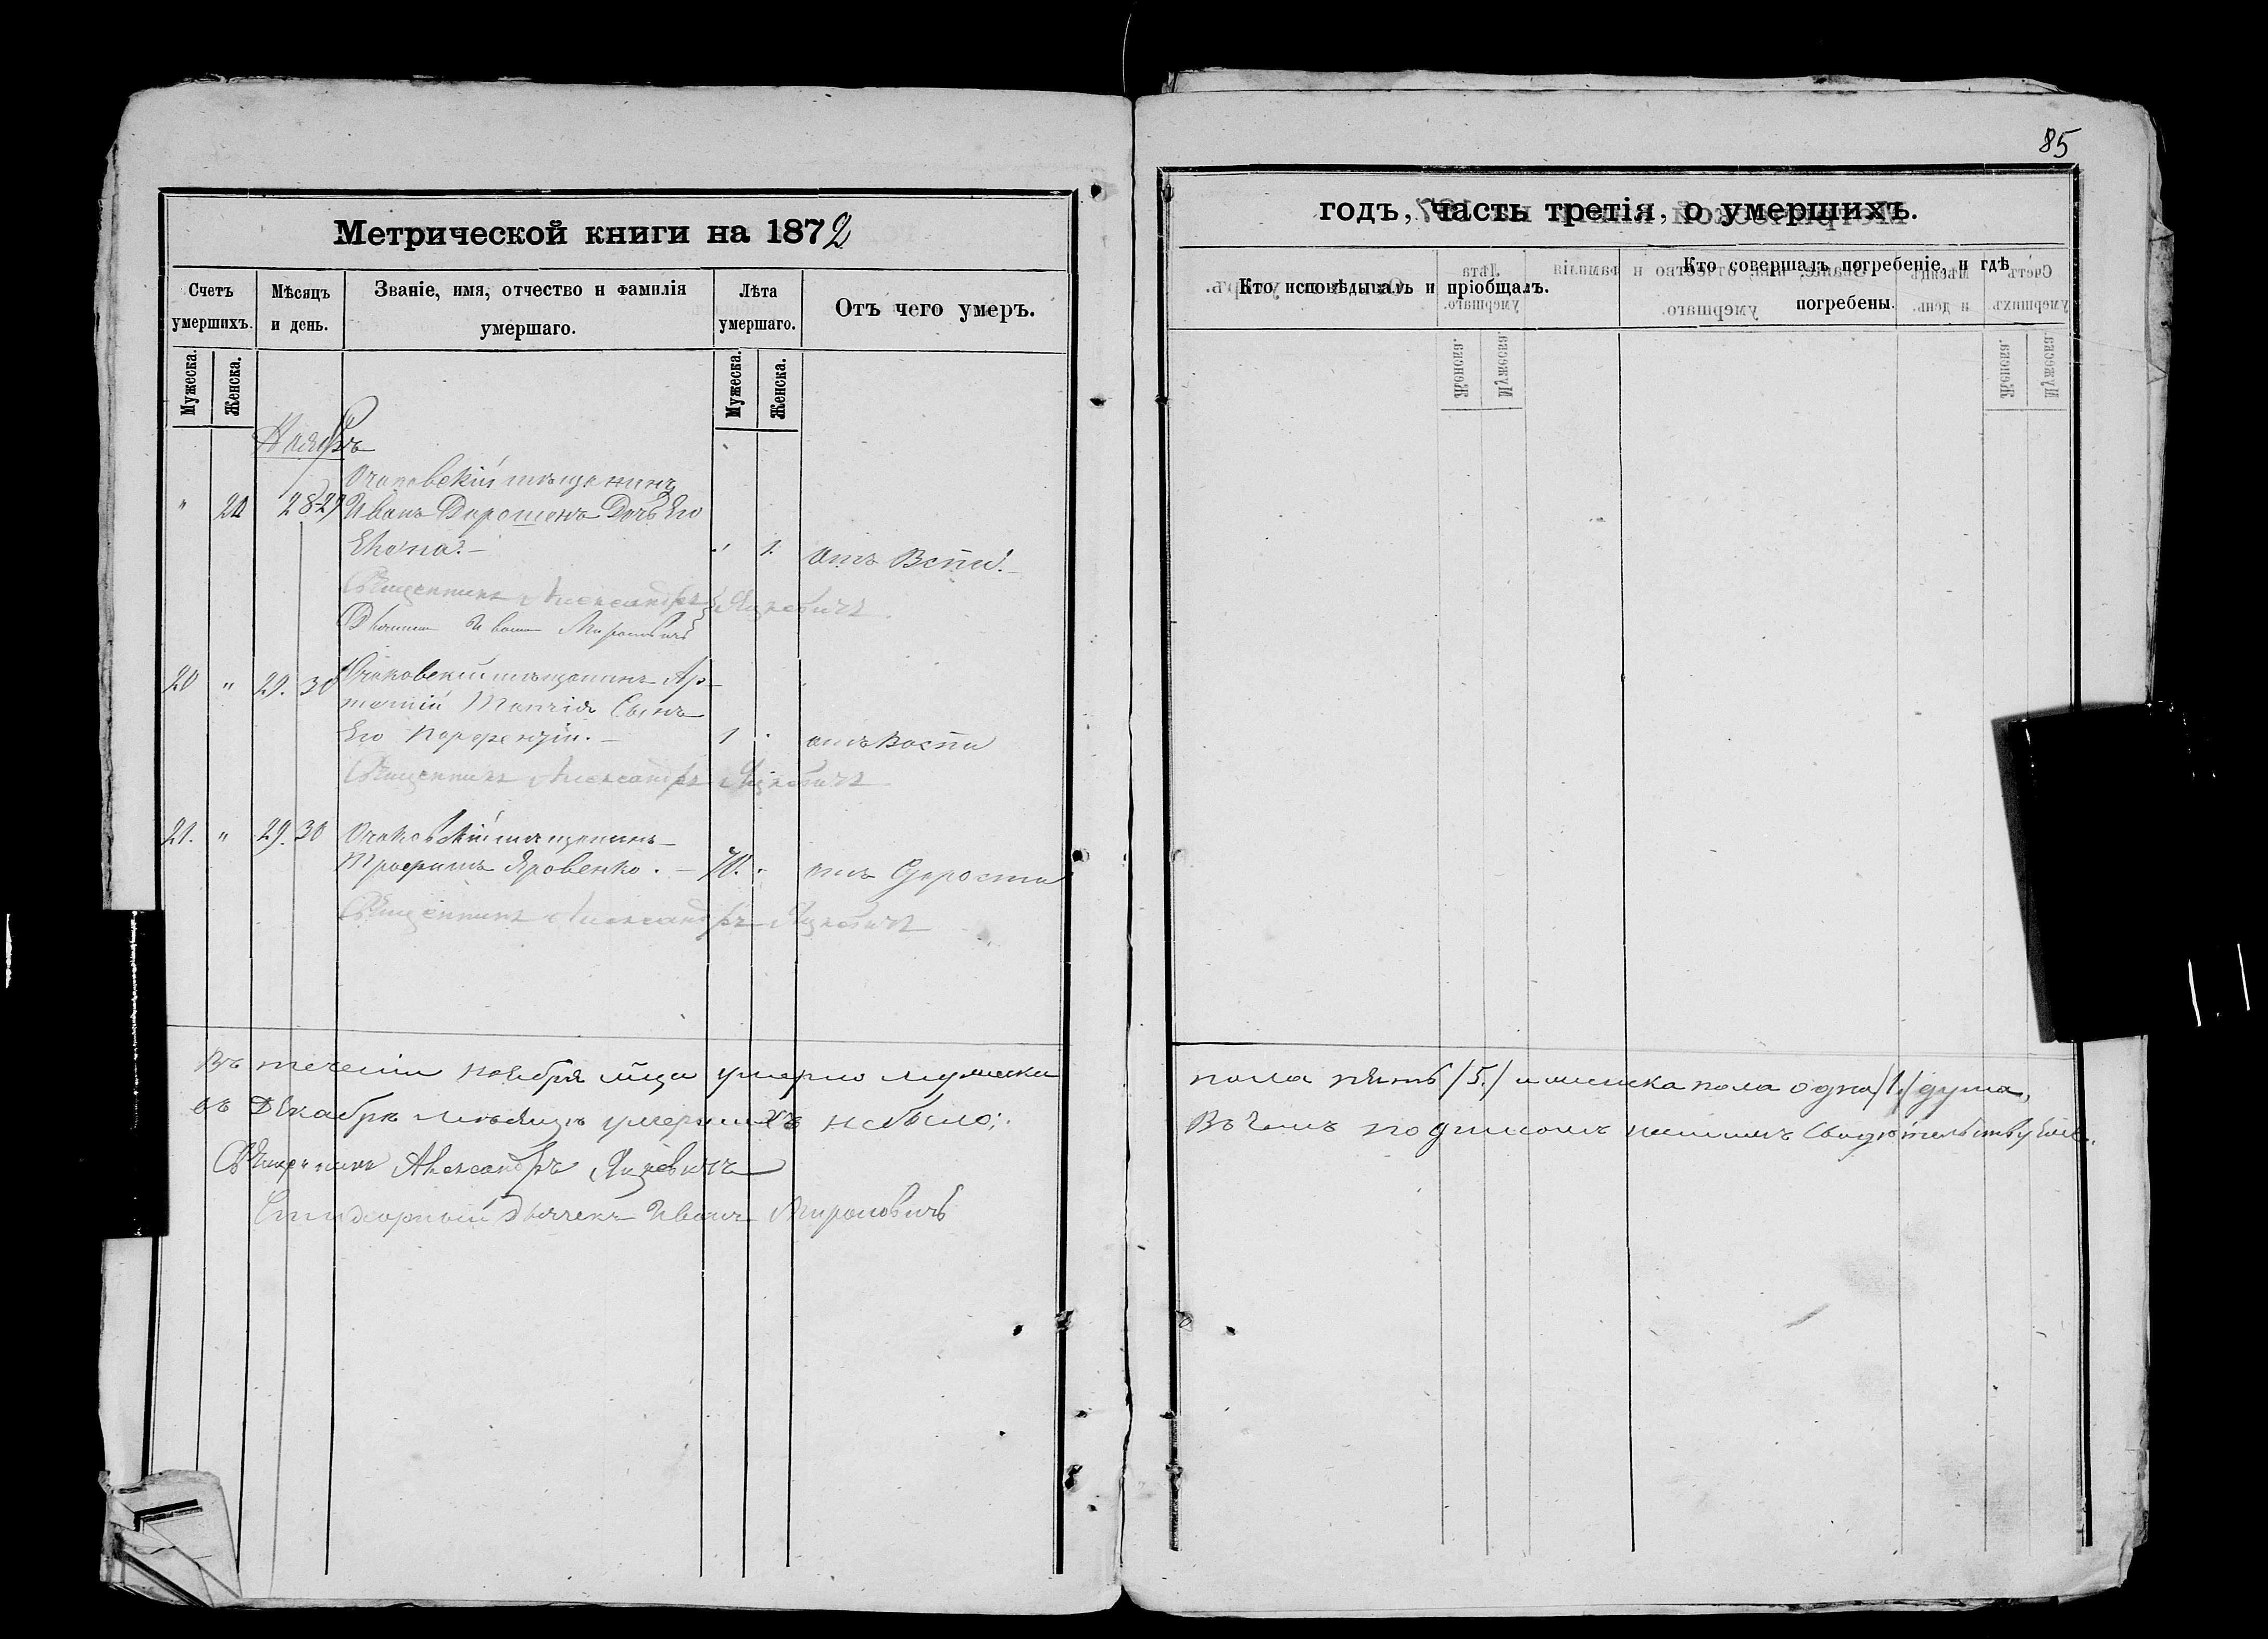 85
Метрической книги на 1872
годъ, часть третія, о умершихъ.
Счетъ умершихъ.
Мѣсяцъ и день.
Званіе, имя, отчество и фамилія умершаго.
Лѣта умершаго.
Отъ чего умеръ.
Кто исповѣдывалъ и пріобщалъ.
Кто совершалъ погребеніе, и гдѣ погребены.
Мужеска.
Женска.
Мужеска.
Женска.
Ноябрь
Очаковскій мѣщанинъ
" 28 29 Иванъ Дорошенъ Дочь Его
" 1. отъ Вспи.
Священникъ Александръ Яцкевичъ
Дьячекъ Иванъ Мироновичъ
20 " 29. 30 Очаковскій мѣщанинъ Ар-
темій Сынъ
Его Порфирій. 1 " отъ Воспи
Священникъ Александръ Яцкевичъ
21. " 29. 30 Очаковскій мѣщанинъ
Трофимъ Яровенко. 70. " отъ Старости
Священникъ Александръ Яцкевичъ
Въ теченіи ноября мца умерло мужеска пола пять /5./ и женска пола одна /1./ душа,
въ Декабрѣ мѣсяцѣ умершихъ небыло:. Въ чемъ подписомъ нашимъ Свидѣтельствуемъ.
Священникъ Александръ Яцкевичъ
Стихарный Дьячекъ Иванъ Мироновичъ